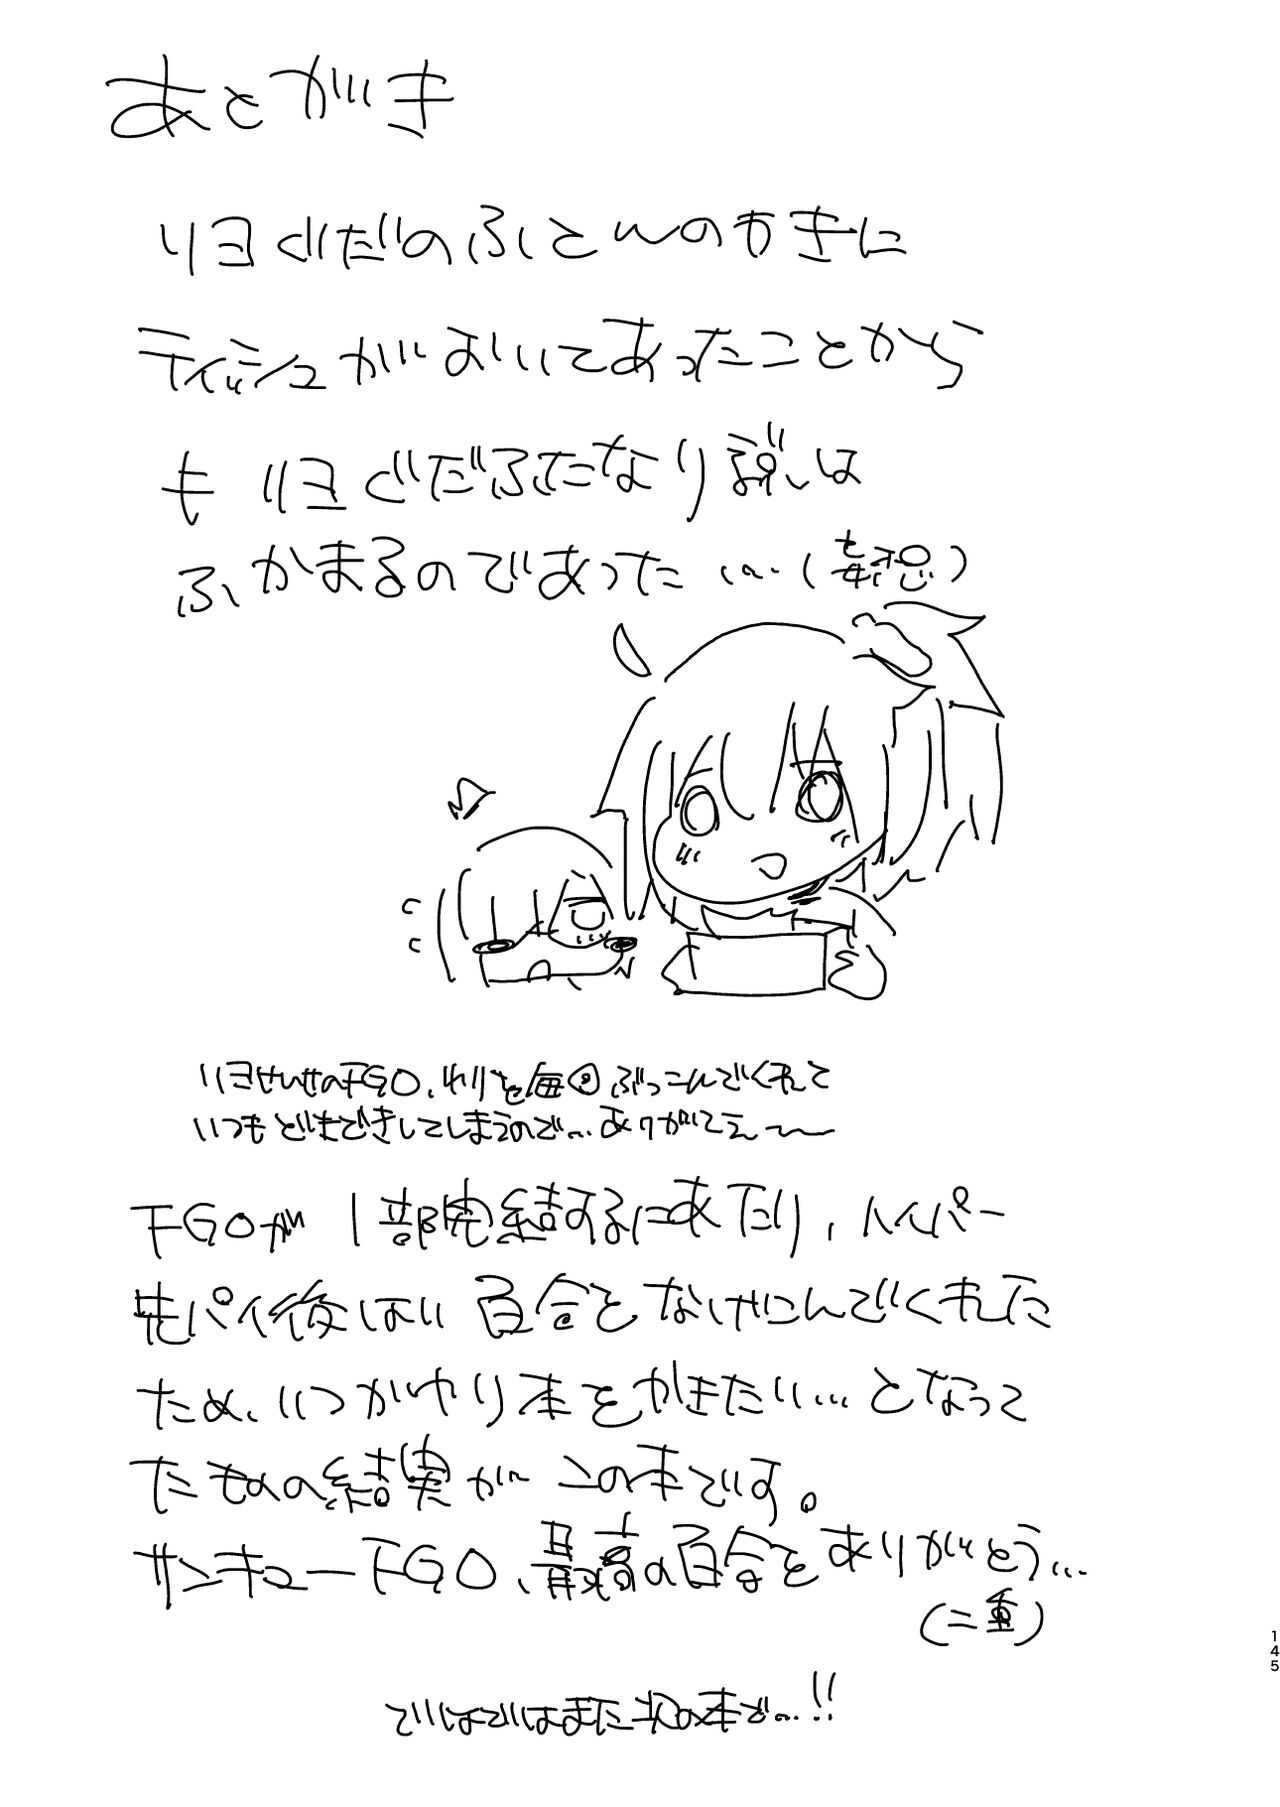 あとがき
リヨぐだのふとんのわきに
ティッシュがおいてあったことから
も リヨぐだふたなり説は
ふかまるのであった…(毒想)
リヨせんせのFGO、わりと毎回ぶっこんでくれて
いつもどきどきしてしまうので…ありがてえ〜
FGOが1部完結するにあたり、ハイパー
先パイ後はい百合をなげこんでくれた
ため、いつかやり本をかきたい…となって
たものの結実がこの本です。
サンキューFGO、最高の百合をありがとう…
(二重)
ではではまた次の本で…!!
145